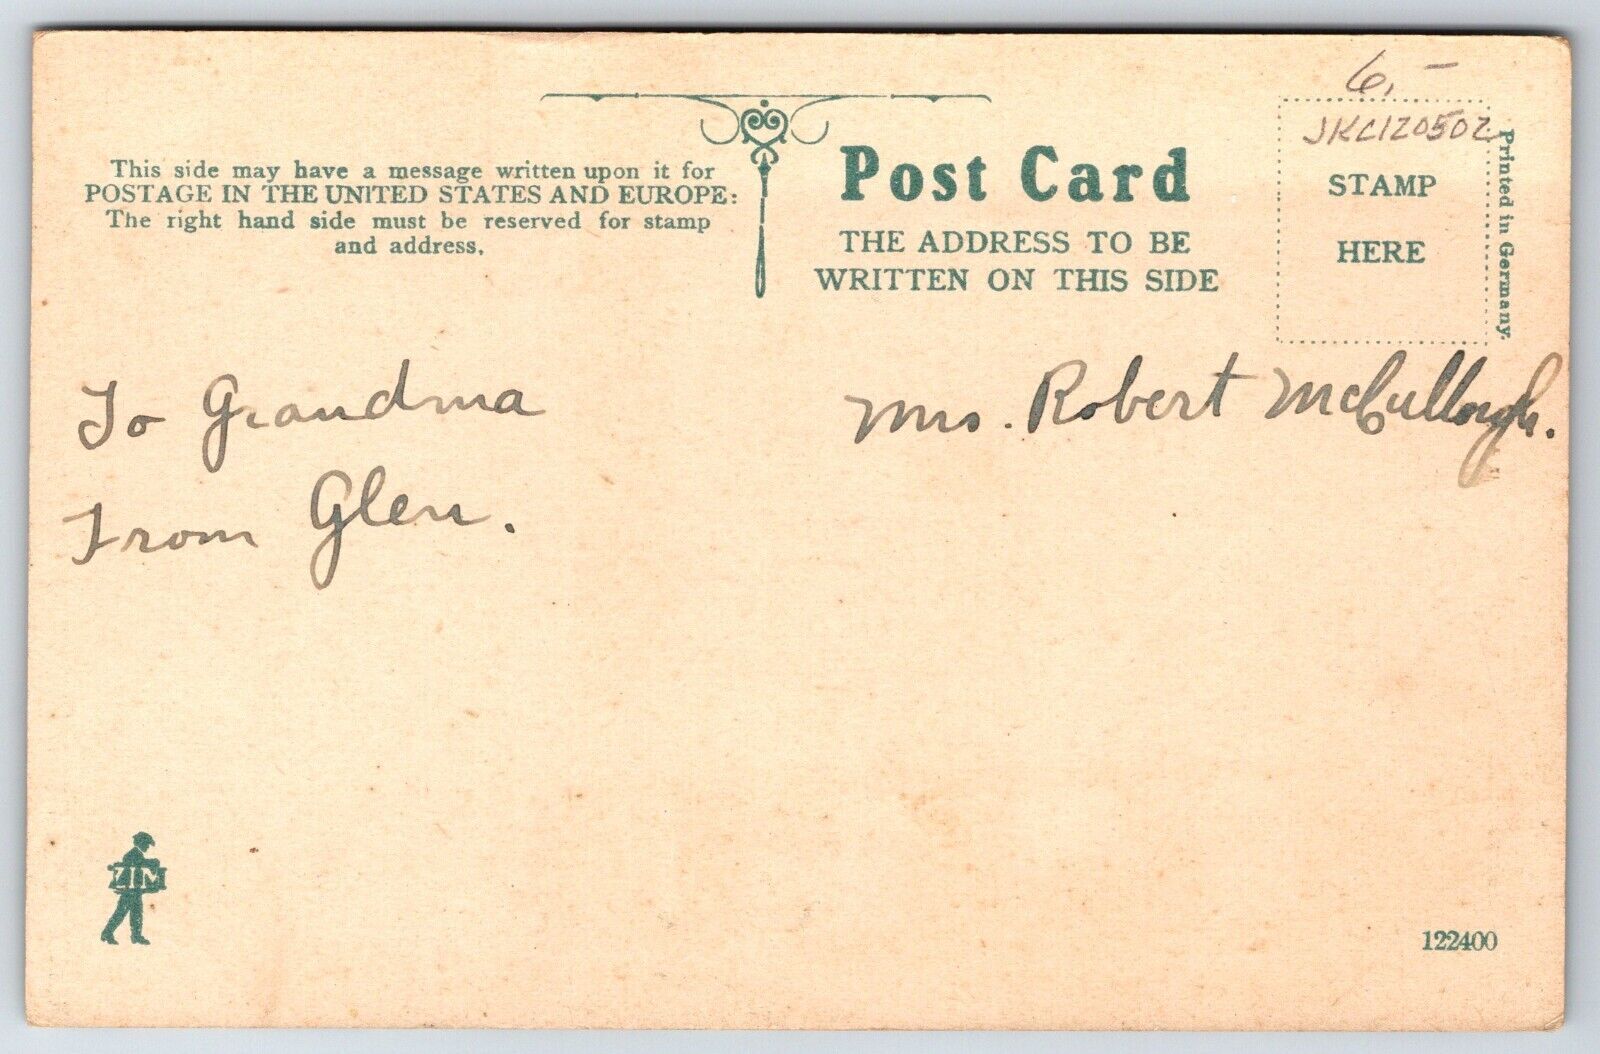 6.–
JKC120502
This side may have a message written upon it for
POSTAGE IN THE UNITED STATES AND EUROPE:
The right hand side must be reserved for stamp
and address.
Post Card
THE ADDRESS TO BE
WRITTEN ON THIS SIDE
STAMP
HERE
Printed in Germany.
To Grandma
From Glen.
Mrs. Robert McCullough.
ZIM
122400